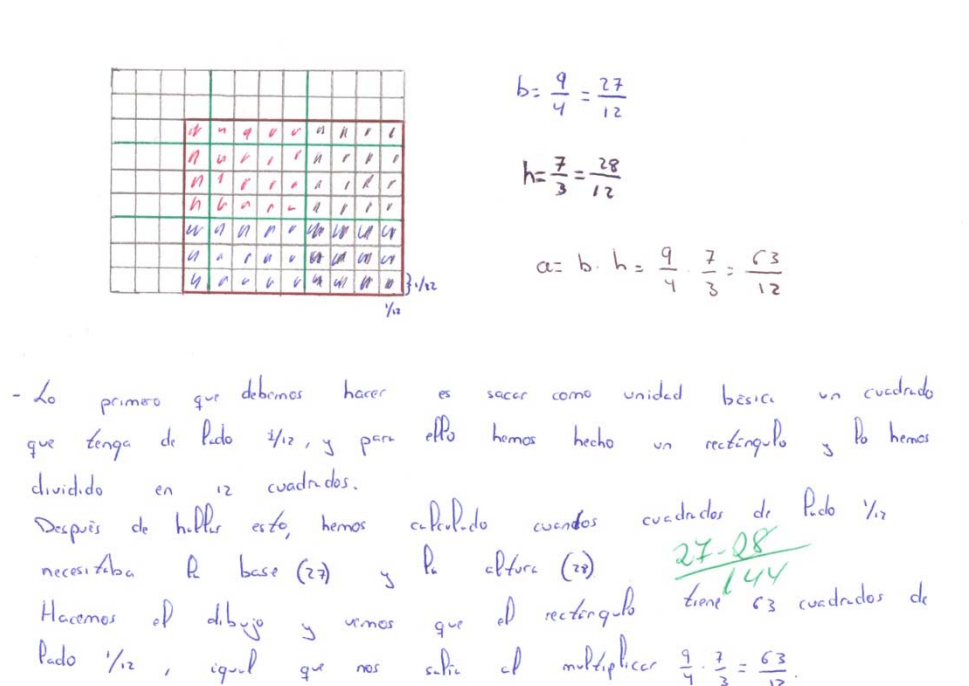 b = 9/4 = 27/12
h = 7/3 = 28/12
a = b · h = 9/4 · 7/3 = 63/12
1/12
1/12
- Lo primero que debemos hacer es sacar como unidad básica un cuadrado
que tenga de lado 1/12, y para ello hemos hecho un rectángulo y lo hemos
dividido en 12 cuadrados.
Después de hallar esto, hemos calculado cuantos cuadrados de lado 1/12
necesitaba la base (27) y la altura (28)
27-28/144
Hacemos el dibujo y vemos que el rectángulo tiene 63 cuadrados de
lado 1/12, igual que nos salía al multiplicar 9/4 · 7/3 = 63/12.